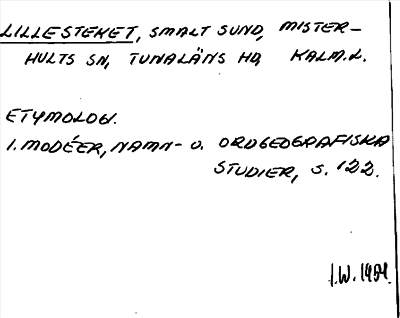 LILLESTEKET, SMALT SUND, MISTER-
HULTS SN, TUNALÄNS HD, KALM.L.
ETYMOLOGI.
I. MODÉER, NAMN- O. ORDGEOGRAFISKA
STUDIER, S. 122.
I.W. 1984.